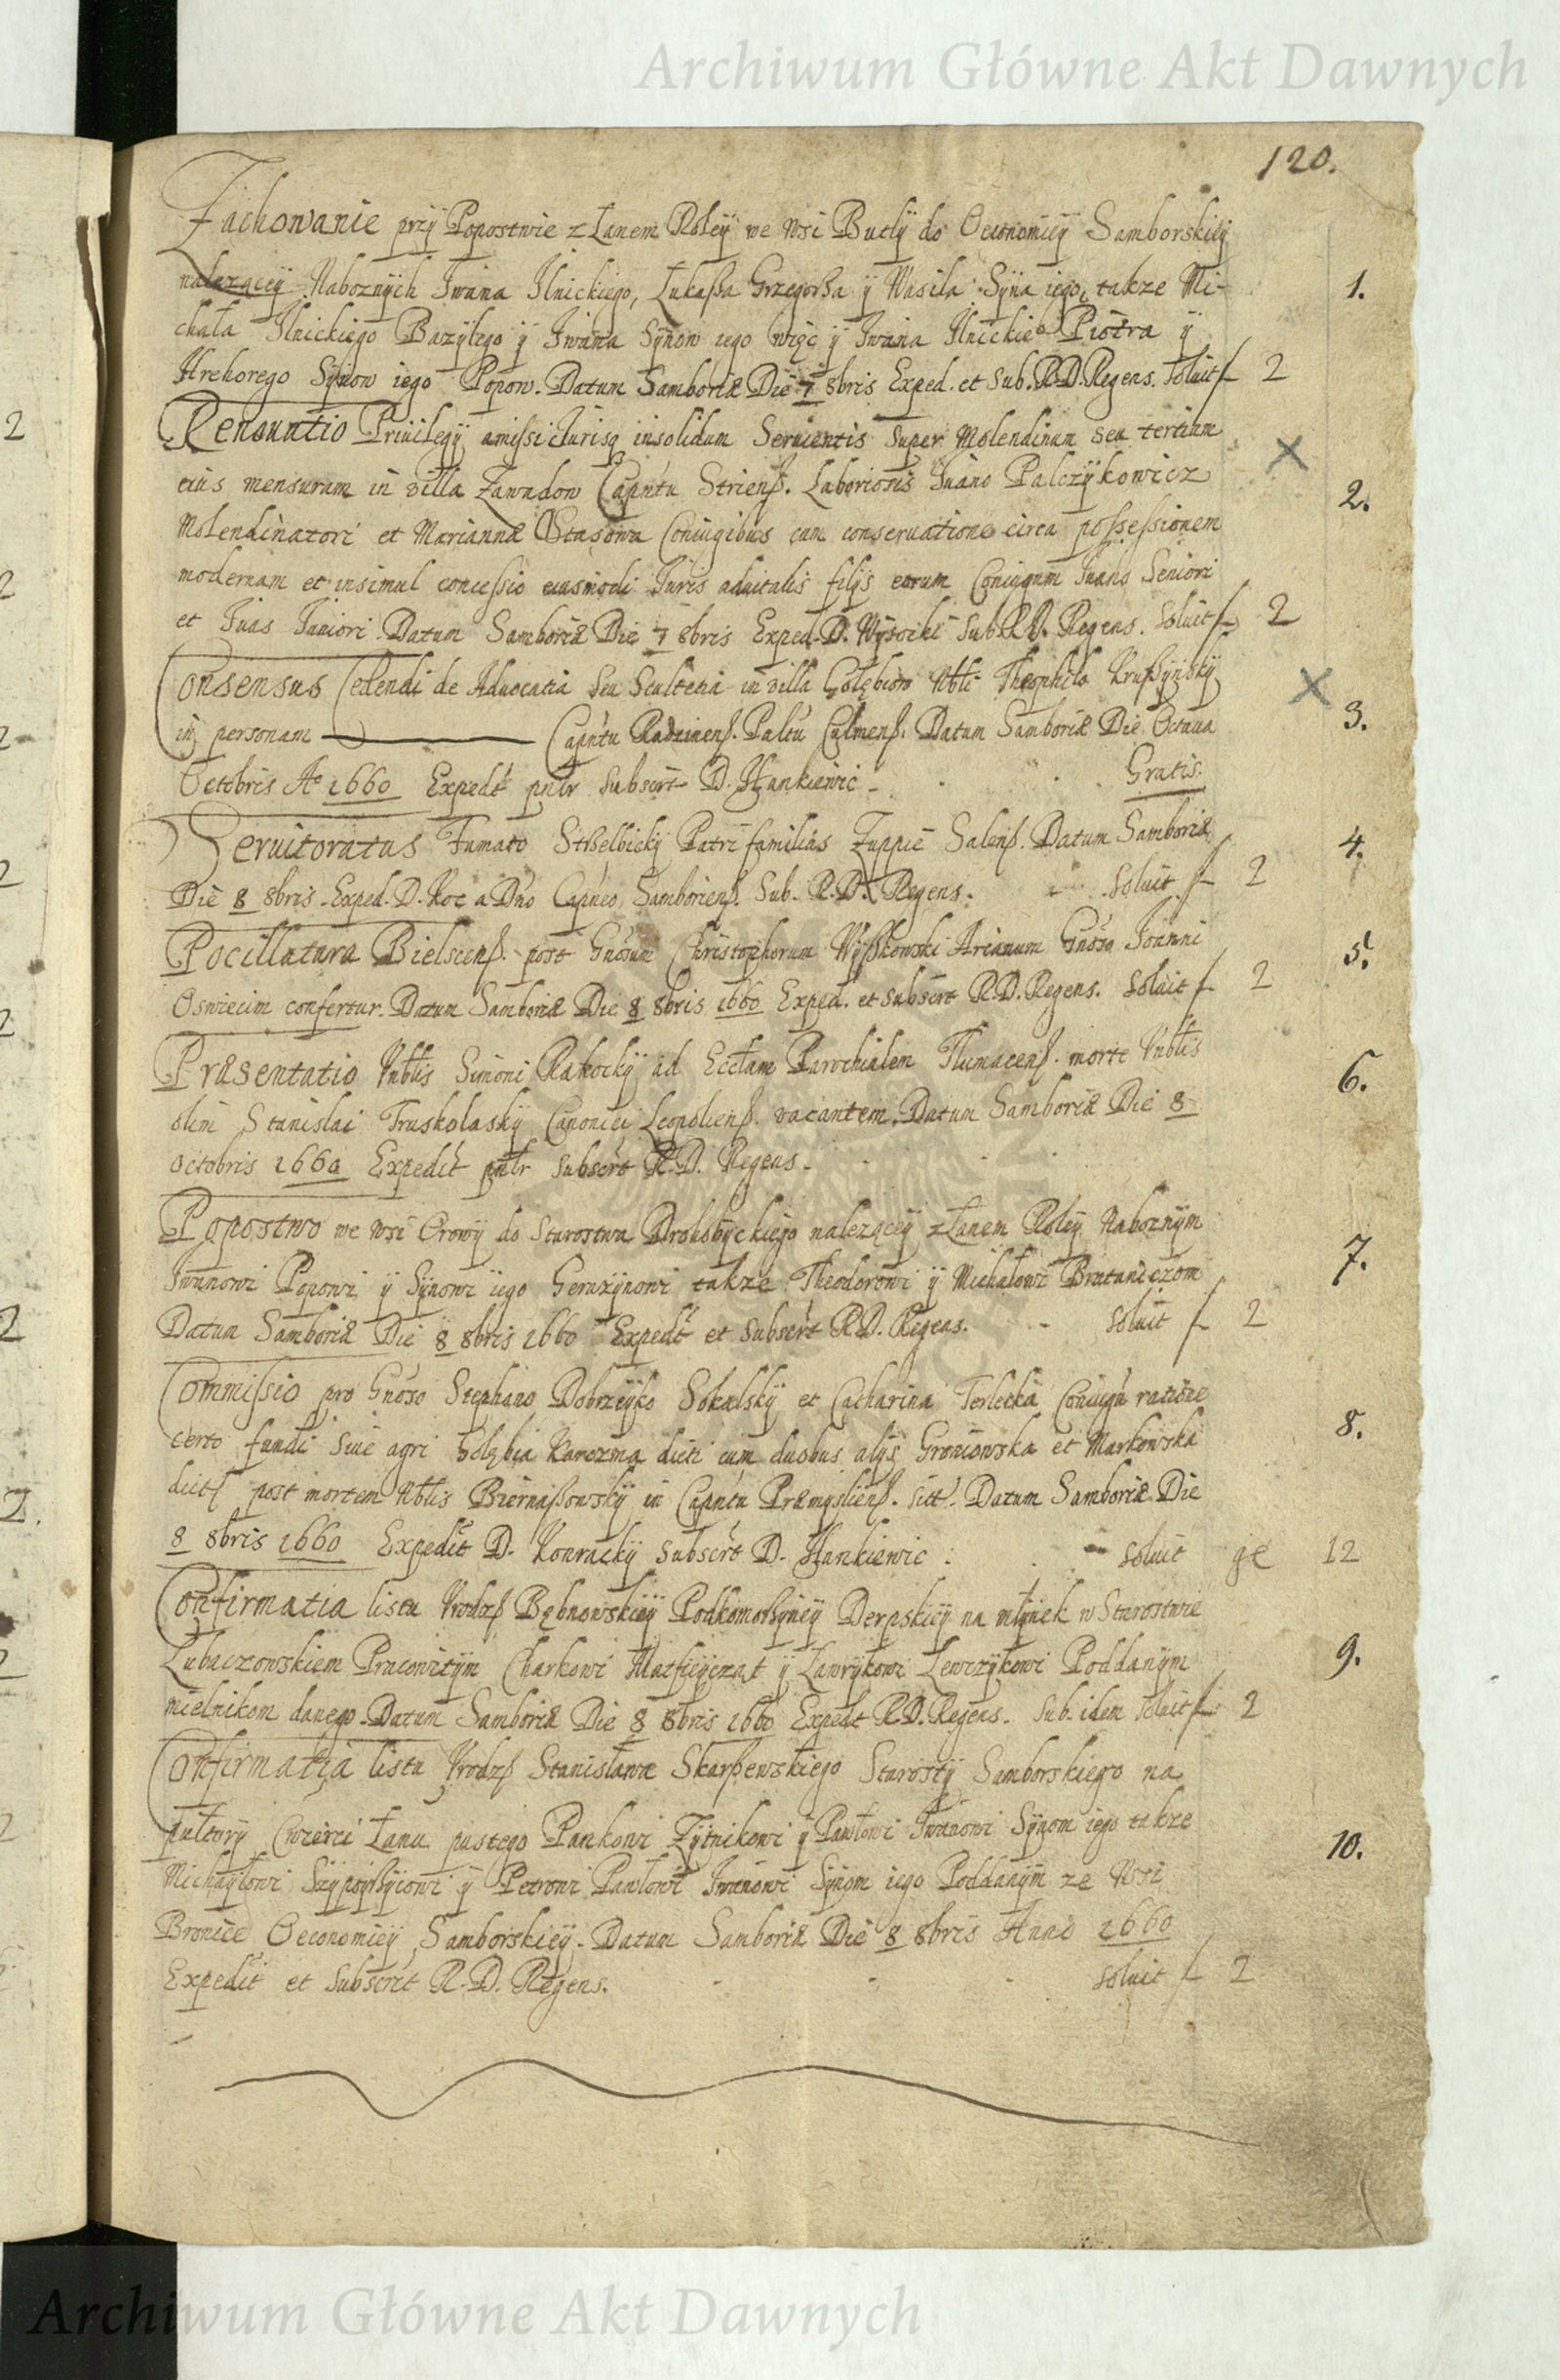 Archiwum Główne Akt Dawnych
120.
Zachowanie przÿ Popostwie z Łanem Roleÿ we wsi Butlÿ do Oeconomiÿ Samborskieÿ
należąceÿ Naboznÿch Iwana Ilnickiego, Łukaßa Grzegorßa ÿ Wasila Sÿna iego, takze Mi-
1.
chała Ilnickiego Bazylego ÿ Iwana Sÿnow iego więc ÿ Iwana Ilnickieo Piotra ÿ
Hrehorego Sÿnow iego Popow. Datum Samboriæ Die 7 8bris Exped. et Sub. R.D. Regens. Soluit f 2
Renouatio Priuilegÿ amissi Iurisq insolidum Seruientis super Molendinum seu tertiam
eius mensuram in villa Zawadow Capntu Striens. Laboriosis Iuano Palczÿkowicz
2.
Molendinatori et Marianæ Stasowa Coniugibus cum conseruatione circa possessionem
modernam et insimul concessio eiusmodi Iuris aduitalis filÿs eorum Coniugum Iuano Seniori
et Iuas Iuniori. Datum Samboriæ Die 7 8bris Exped. D. Wÿsocki Sub. R.D. Regens. Soluit f 2
Consensus Cedendi de Aduocatia seu Scultetia in villa Gołębiow Nbli Theophilo Krußÿnskÿ
in personam Capntu Radzinens. Paltu Culmens. Datum Samboriæ Die Octaua
3.
Octobris Ao 1660 Expedt pntr Subscrt D. Hankiewic Gratis.
Seruitoratus Fumato Strzelbickÿ Patri familias Zuppie Salens. Datum Samboriæ
4.
Die 8 8bris. Exped. D. Koc a Dno Capneo Samboriens. Sub. R.D. Regens. Soluit f 2
Pocillatura Bielscens. post Gnosum Christophorum Wÿßkowski Arianum Gnoso Ioanni
5.
Oswiecim confertur. Datum Samboriæ Die 8 8bris 1660 Exped. et Subscrt R.D. Regens. Soluit f 2
Præsentatio Vnblis Simoni Rakockÿ ad Ecclam Parochialem Tlumacens. morte Vnblis
6.
olim Stanislai Truskolaskÿ Canonici Leopoliens. vacantem. Datum Samboriæ Die 8
Octobris 1660 Expedit pntr Subscrt R.D. Regens.
Popostwo we wsi Orowÿ do Starostwa Drohobÿckiego naleząceÿ z Łanem Roleÿ Naboznÿm
7.
Iwanowi Popowi ÿ Sÿnowi iego Gerazÿnowi takze Theodorowi ÿ Michałowi Brataniczom
Datum Samboriæ Die 8 8bris 1660 Expedt et Subscrt R.D. Regens. Soluit f 2
Commissio pro Gnoso Stephano Dobrzeÿko Sokalskÿ et Catharina Terlecka Coniugu ratione
certo fundi siue agri Gołębia Karczma dicti cum duobus alÿs Groniowska et Markowska
8.
dict post mortem Nblis Biernaßowskÿ in Capntu Præmÿsliens. sitt. Datum Samboriæ Die
8 8bris 1660 Expedit D. Konrackÿ Subscrt D. Hankiewic. Soluit ge 12
Confirmatia listu Vrodz Bębnowskieÿ Podkomorßÿneÿ Derpskieÿ na młÿnek w Starostwie
Lubaczowskiem Pracowitÿm Charkowi ÿ Lawrÿkowi Lewczÿkowi Poddanÿm
9.
mielnikom danego. Datum Samboriæ Die 8 8bris 1660 Expedt R.D. Regens. Sub. idem Soluit f 2
Confirmatia listu Vrodz Stanisława Skarßewskiego Starostÿ Samborskiego na
pułtorÿ Cwierci Łanu pustego Pankowi Zÿtnikowi ÿ Pawłowi Iwanowi Sÿnom iego takze
10.
Michaÿłowi ÿ Petrowi Pawłowi Iwanowi Sÿnom iego Poddanÿm ze Wsi
Bronice Oeconomieÿ Samborskieÿ. Datum Samboriæ Die 8 8bris Anno 1660
Expedit et Subscrit R.D. Regens. Soluit f 2
Archiwum Główne Akt Dawnych